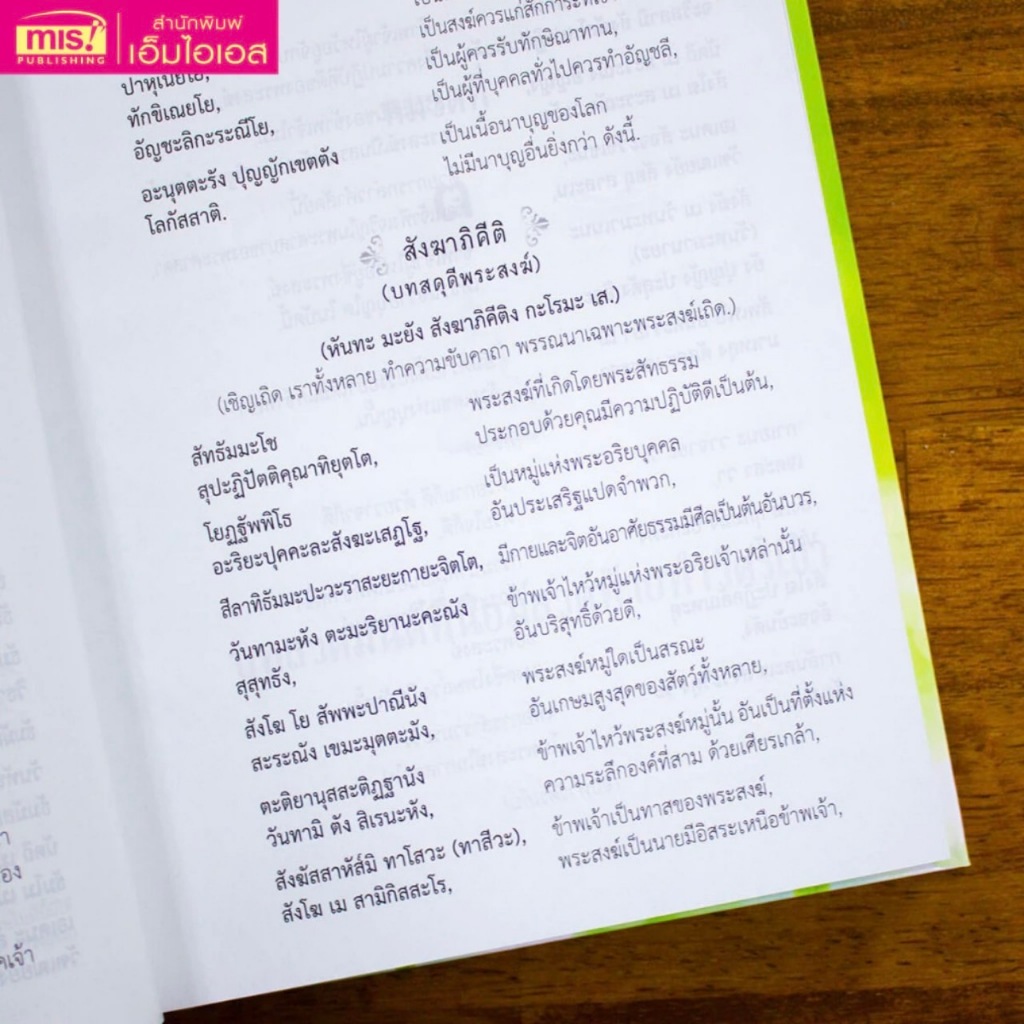 mis!
PUBLISHING
สำนักพิมพ์
เอ็มไอเอส
เป็นสงฆ์ควรแก่สักการะที่เขา
ปาหุเนยโย,
เป็นผู้ควรรับทักษิณาทาน,
ทักขิเณยโย,
เป็นผู้ที่บุคคลทั่วไปควรทำอัญชลี,
อัญชะลิกะระณีโย,
เป็นเนื้อนาบุญของโลก
อะนุตตะรัง ปุญญักเขตตัง
ไม่มีนาบุญอื่นยิ่งกว่า ดังนี้.
โลกัสสาติ.
สังฆาภิคีติ
(บทสดุดีพระสงฆ์)
(หันทะ มะยัง สังฆาภิคีติง กะโรมะ เส.)
(เชิญเถิด เราทั้งหลาย ทำความขับคาถา พรรณนาเฉพาะพระสงฆ์เถิด.)
สัทธัมมะโช
พระสงฆ์ที่เกิดโดยพระสัทธรรม
สุปะฏิปัตติคุณาทิยุตโต,
ประกอบด้วยคุณมีความปฏิบัติดีเป็นต้น,
โยฏฐัพพิโธ
เป็นหมู่แห่งพระอริยบุคคล
อะริยะปุคคะละสังฆะเสฏโฐ,
อันประเสริฐแปดจำพวก,
สีลาทิธัมมะปะวะราสะยะกายะจิตโต, มีกายและจิตอันอาศัยธรรมมีศีลเป็นต้นอันบวร,
วันทามะหัง ตะมะริยานะคะณัง
ข้าพเจ้าไหว้หมู่แห่งพระอริยเจ้าเหล่านั้น
สุสุทธัง,
อันบริสุทธิ์ด้วยดี,
สังโฆ โย สัพพะปาณีนัง
พระสงฆ์หมู่ใดเป็นสรณะ
สะระณัง เขมะมุตตะมัง,
อันเกษมสูงสุดของสัตว์ทั้งหลาย,
ตะติยานุสสะติฏฐานัง
ข้าพเจ้าไหว้พระสงฆ์หมู่นั้น อันเป็นที่ตั้งแห่ง
วันทามิ ตัง สิเรนะหัง,
ความระลึกองค์ที่สาม ด้วยเศียรเกล้า,
สังฆัสสาหัส์มิ ทาโสวะ (ทาสีวะ),
ข้าพเจ้าเป็นทาสของพระสงฆ์,
สังโฆ เม สามิกิสสะโร,
พระสงฆ์เป็นนายมีอิสระเหนือข้าพเจ้า,